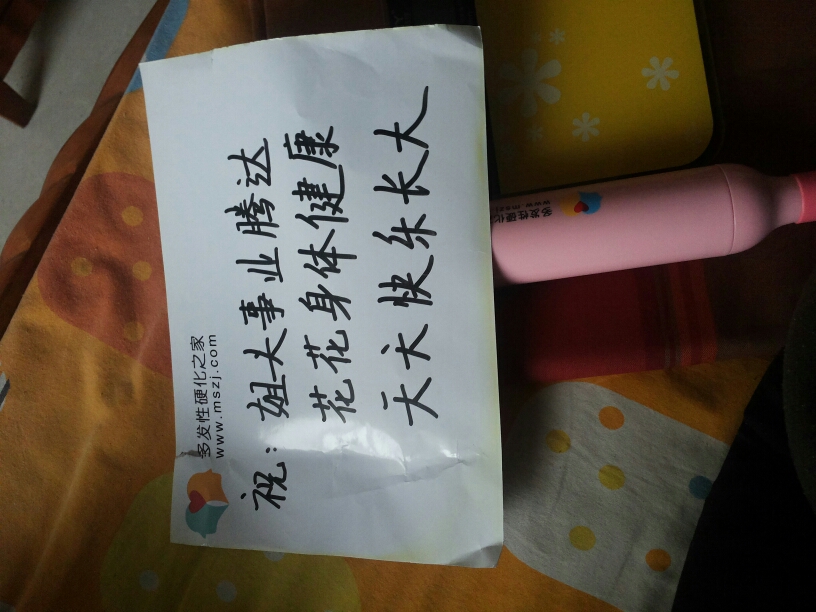 多发性硬化之家
www.mszj.com
祝：姐夫事业腾达
花花身体健康
天天快乐长大
多发性硬化